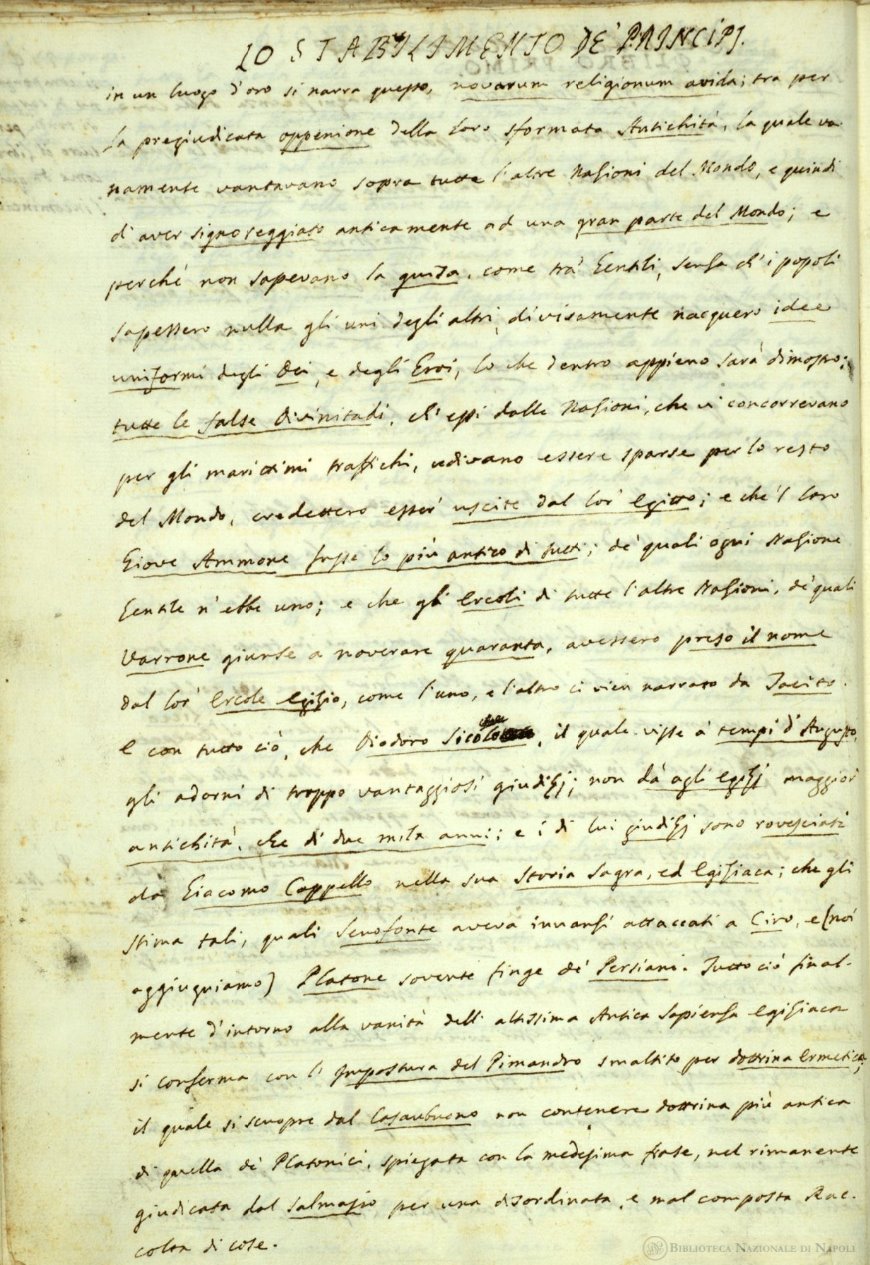 LO STABILIMENTO DE' PRINCIPJ.
in un luogo d'oro si narra questo, novarum religionum avida; tra per
la pregiudicata oppenione della loro sformata Antichità, la quale va
namente vantavano sopra tutte l'altre Nazioni del Mondo, e quindi
d'aver signoreggiato anticamente ad una gran parte del Mondo; e
perchè non sapevano la guisa, come trà Gentili, senza ch'i popoli
sapessero nulla gli uni degli altri, divisamente nacquero idee
uniformi degli Dei, e degli Eroi, lo che dentro appieno sarà dimostro:
tutte le false Divinitadi, ch'essi dalle Nazioni, che vi concorrevano
per gli marittimi traffichi, udivano essere sparse per lo resto
del Mondo, credettero esser' uscite dal lor' Egitto; e che 'l loro
Giove Ammone fusse lo più antico di tutti; de' quali ogni Nazione
Gentile n'ebbe uno; e che gli Ercoli di tutte l'altre Nazioni, de' quali
Varrone giunse a noverare quaranta, avessero preso il nome
dal lor' Ercole Egizio, come l'uno, e l'altro ci vien narrato da Tacito.
E con tutto ciò, che Diodoro Sicolo, il quale visse a' tempi d'Augusto,
gli adorni di troppo vantaggiosi giudizj; non dà agli Egizj maggior
antichità, che di due mila anni; e i di lui giudizj sono rovesciati
da Giacomo Cappello nella sua Storia Sagra, ed Egiziaca; che gli
stima tali, quali Senofonte aveva innanzi attaccati a Ciro, e (noi
aggiugniamo) Platone sovente finge de' Persiani. Tutto ciò final-
mente d'intorno alla vanità dell' altissima Antica Sapienza Egiziaca
si conferma con l'impostura del Pimandro smaltito per dottrina Ermetica;
il quale si scuopre dal Casaubuono non contenere dottrina più antica
di quella de' Platonici, spiegata con la medesima frase, nel rimanente
giudicata dal Salmasio per una disordinata, e mal composta Rac-
colta di cose.
BIBLIOTECA NAZIONALE DI NAPOLI